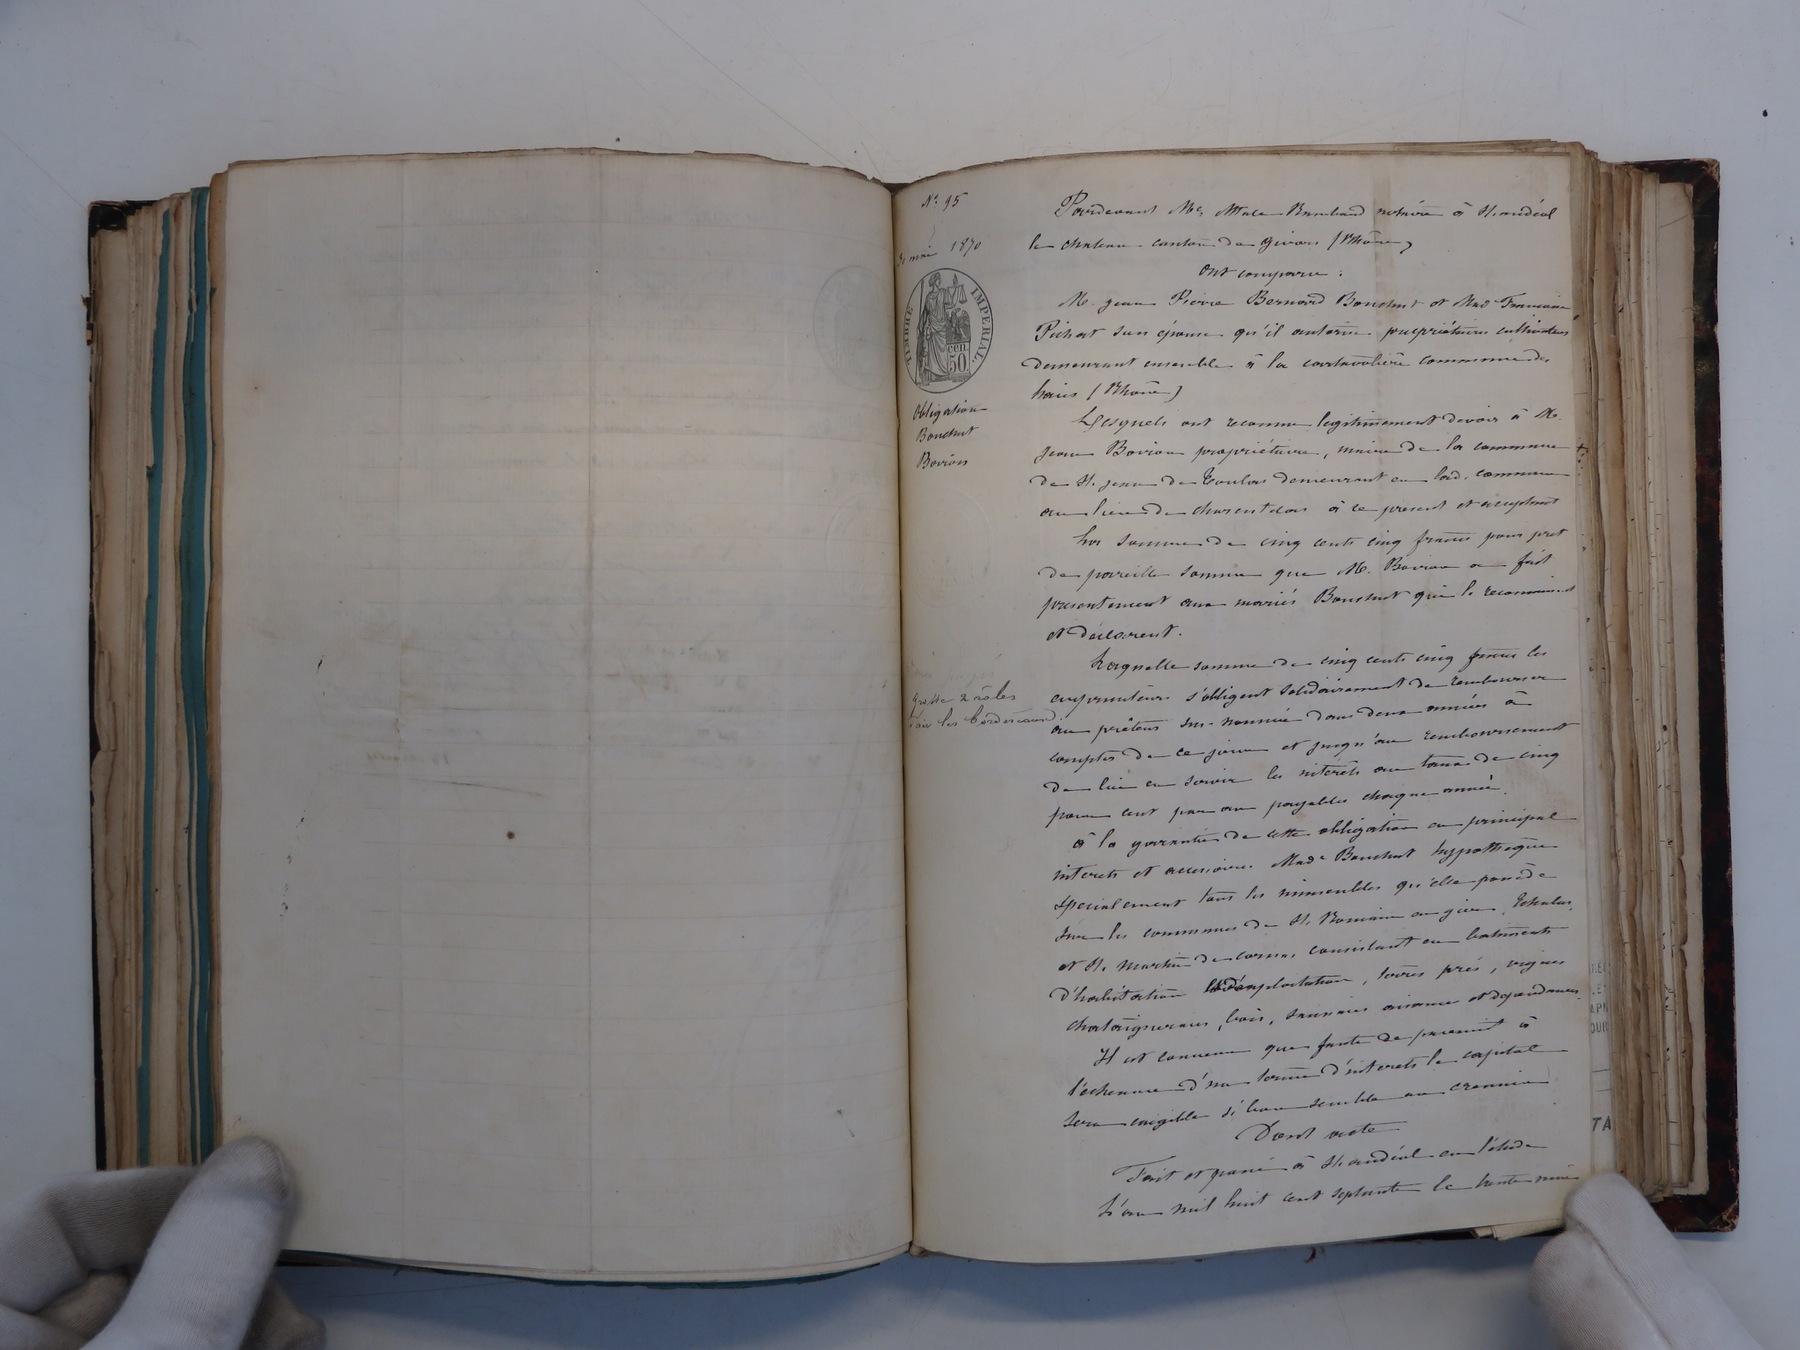 N° 95
30 mai 1870
TIMBRE IMPERIAL
50 cen.
Obligation
Bouchut
Boiron
Grosse 2 rôles
les bordereaux
Pardevant Me notaire à St andéol
le chateau canton de givors (Rhône)
ont comparu :
M. jean Pierre Bernard Bouchut et Mad Francoise
Pichat son épouse qu'il autorise propriétaires cultivateurs
demeurant ensemble à la commune des
haies (Rhône)
Lesquels ont reconnu legitimement devoir à M.
jean Boiron propriétaire, maire de la commune
de St. jean de Toulas demeurant en lad. commune
au lieu de à ce present et acceptant
La somme de cinq cents cinq francs pour pret
de pareille somme que M. Boiron a fait
presentement aux mariés Bouchut qui le reconnaissent
et déclarent.
Laquelle somme de cinq cents cinq francs les
emprunteurs s'obligent solidairement de rembourser
au prêteur sus-nommé dans deux années à
compter de ce jour et jusqu'au remboursement
de lui en servir les intérêts au taux de cinq
pour cent par an payables chaque année.
à la garantie de cette obligation en principal
interets et accessoires Made Bouchut hypothèque
specialement tous les immeubles qu'elle possède
sur les communes de St. Romain en gier, Echalas,
et St. martin de cornas consistant en batiments
d'habitation d'exploitation, terres prés, vignes
chataigneraies, bois, aisance et dependances.
Il est convenu que faute de paiement à
l'échéance d'un terme d'interets le capital
sera exigible si bon semble au créancier
Dont acte
Fait et passé à St andéol en l'étude
L'an mil huit cent septante le trente mai